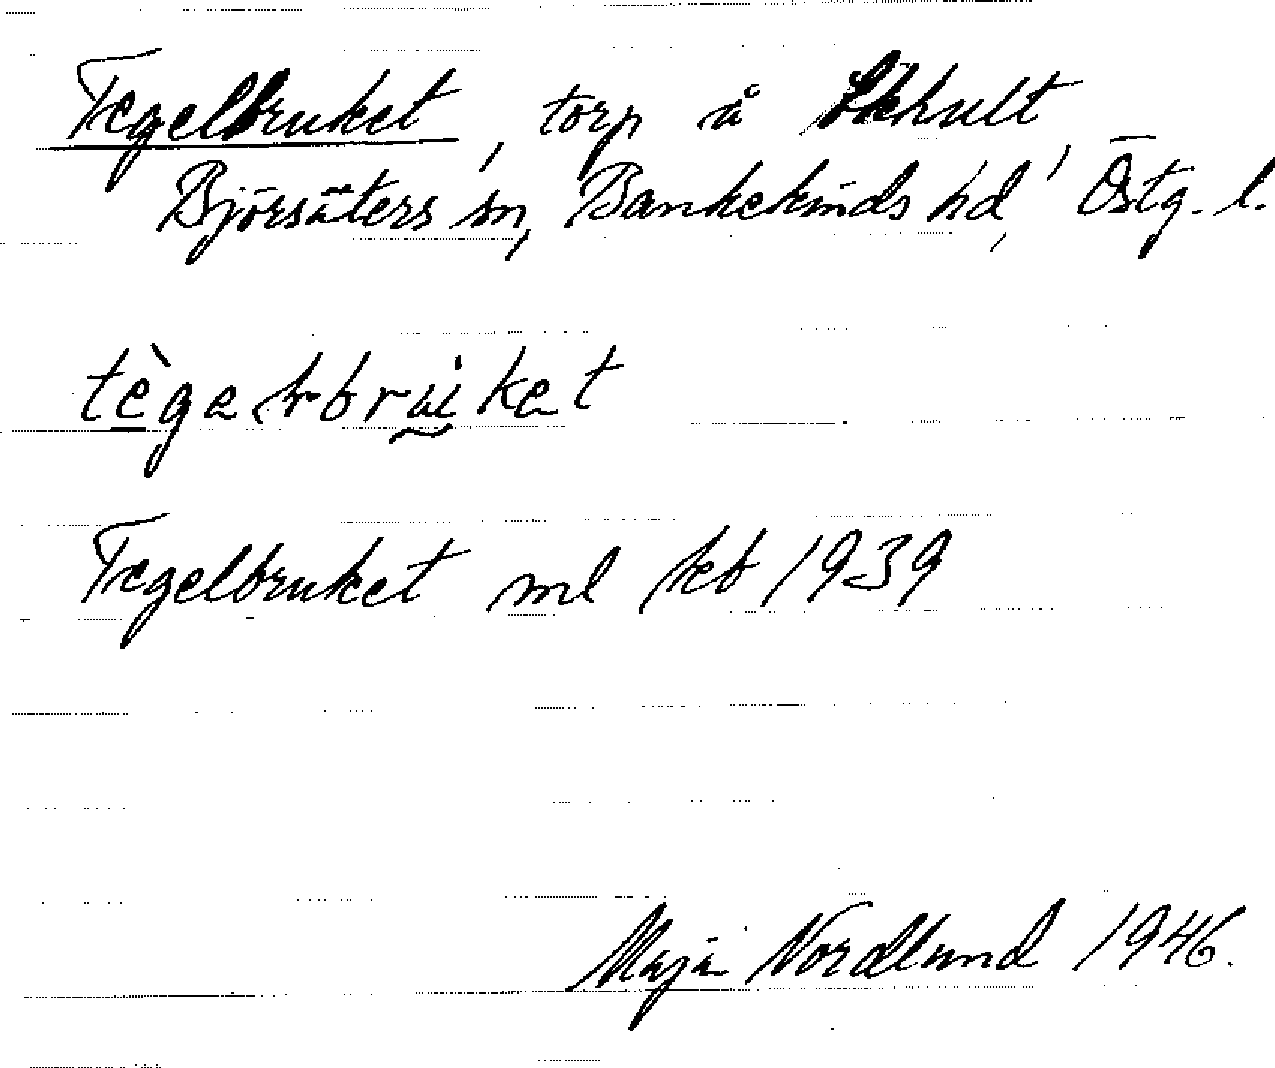 Tegelbruket, torp å Ekhult
Björsäters sn, Bankekinds hd, Östg. l.
Tegelbruket ml kb 1939
Maja Nordlund 1946.